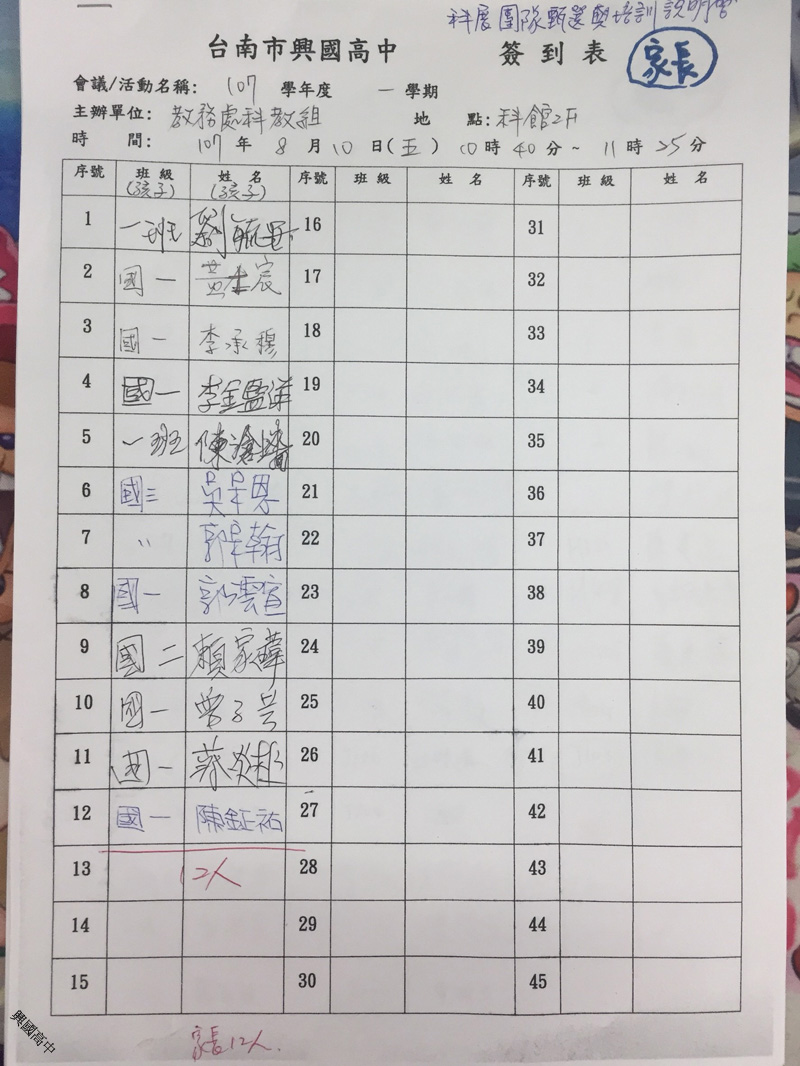 科展團隊甄選與培訓說明會
台南市興國高中 簽到表 家長
會議/活動名稱: 107 學年度 一 學期
主辦單位: 教務處科教組 地 點: 科館2F
時 間: 107 年 8 月 10 日(五) 10時 40 分~ 11 時 25 分
序號 班級 姓名 序號 班級 姓名 序號 班級 姓名
(孩子) (孩子)
1 一班 劉 16 31
2 國一 黃 宸 17 32
3 國一 李承穆 18 33
4 國一 李 19 34
5 一班 陳 20 35
6 國三 吳 恩 21 36
7 〃 郭 翰 22 37
8 國一 郭雲萱 23 38
9 國二 賴家 24 39
10 國一 曾子芸 25 40
11 國一 蔡 26 41
12 國一 陳鉦祐 27 42
13 12人 28 43
14 29 44
15 30 45
家長12人.
興國高中